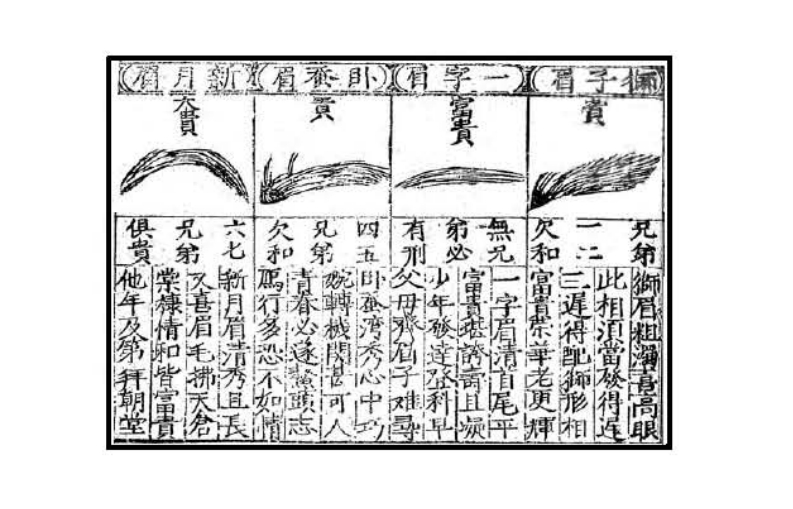 獅子眉
貴
兄弟
一二
欠和
獅眉粗濁喜高眼
此相須當發得遲
三遲得配獅形相
富貴榮華老更輝
一字眉
富貴
無兄
弟必
有刑
一字眉清首尾平
富貴堪誇壽且凝
少年發達登科早
父母齊眉子难尋
卧蚕眉
貢
四五
兄弟
欠和
卧蚕湾秀心中巧
婉轉機関甚可人
青春必遂鰲頭志
鴈行多恐不如情
新月眉
大貴
六七
兄弟
俱貴
新月眉清秀且長
又喜眉毛拂天倉
棠棣情和皆富貴
他年及第拜朝堂